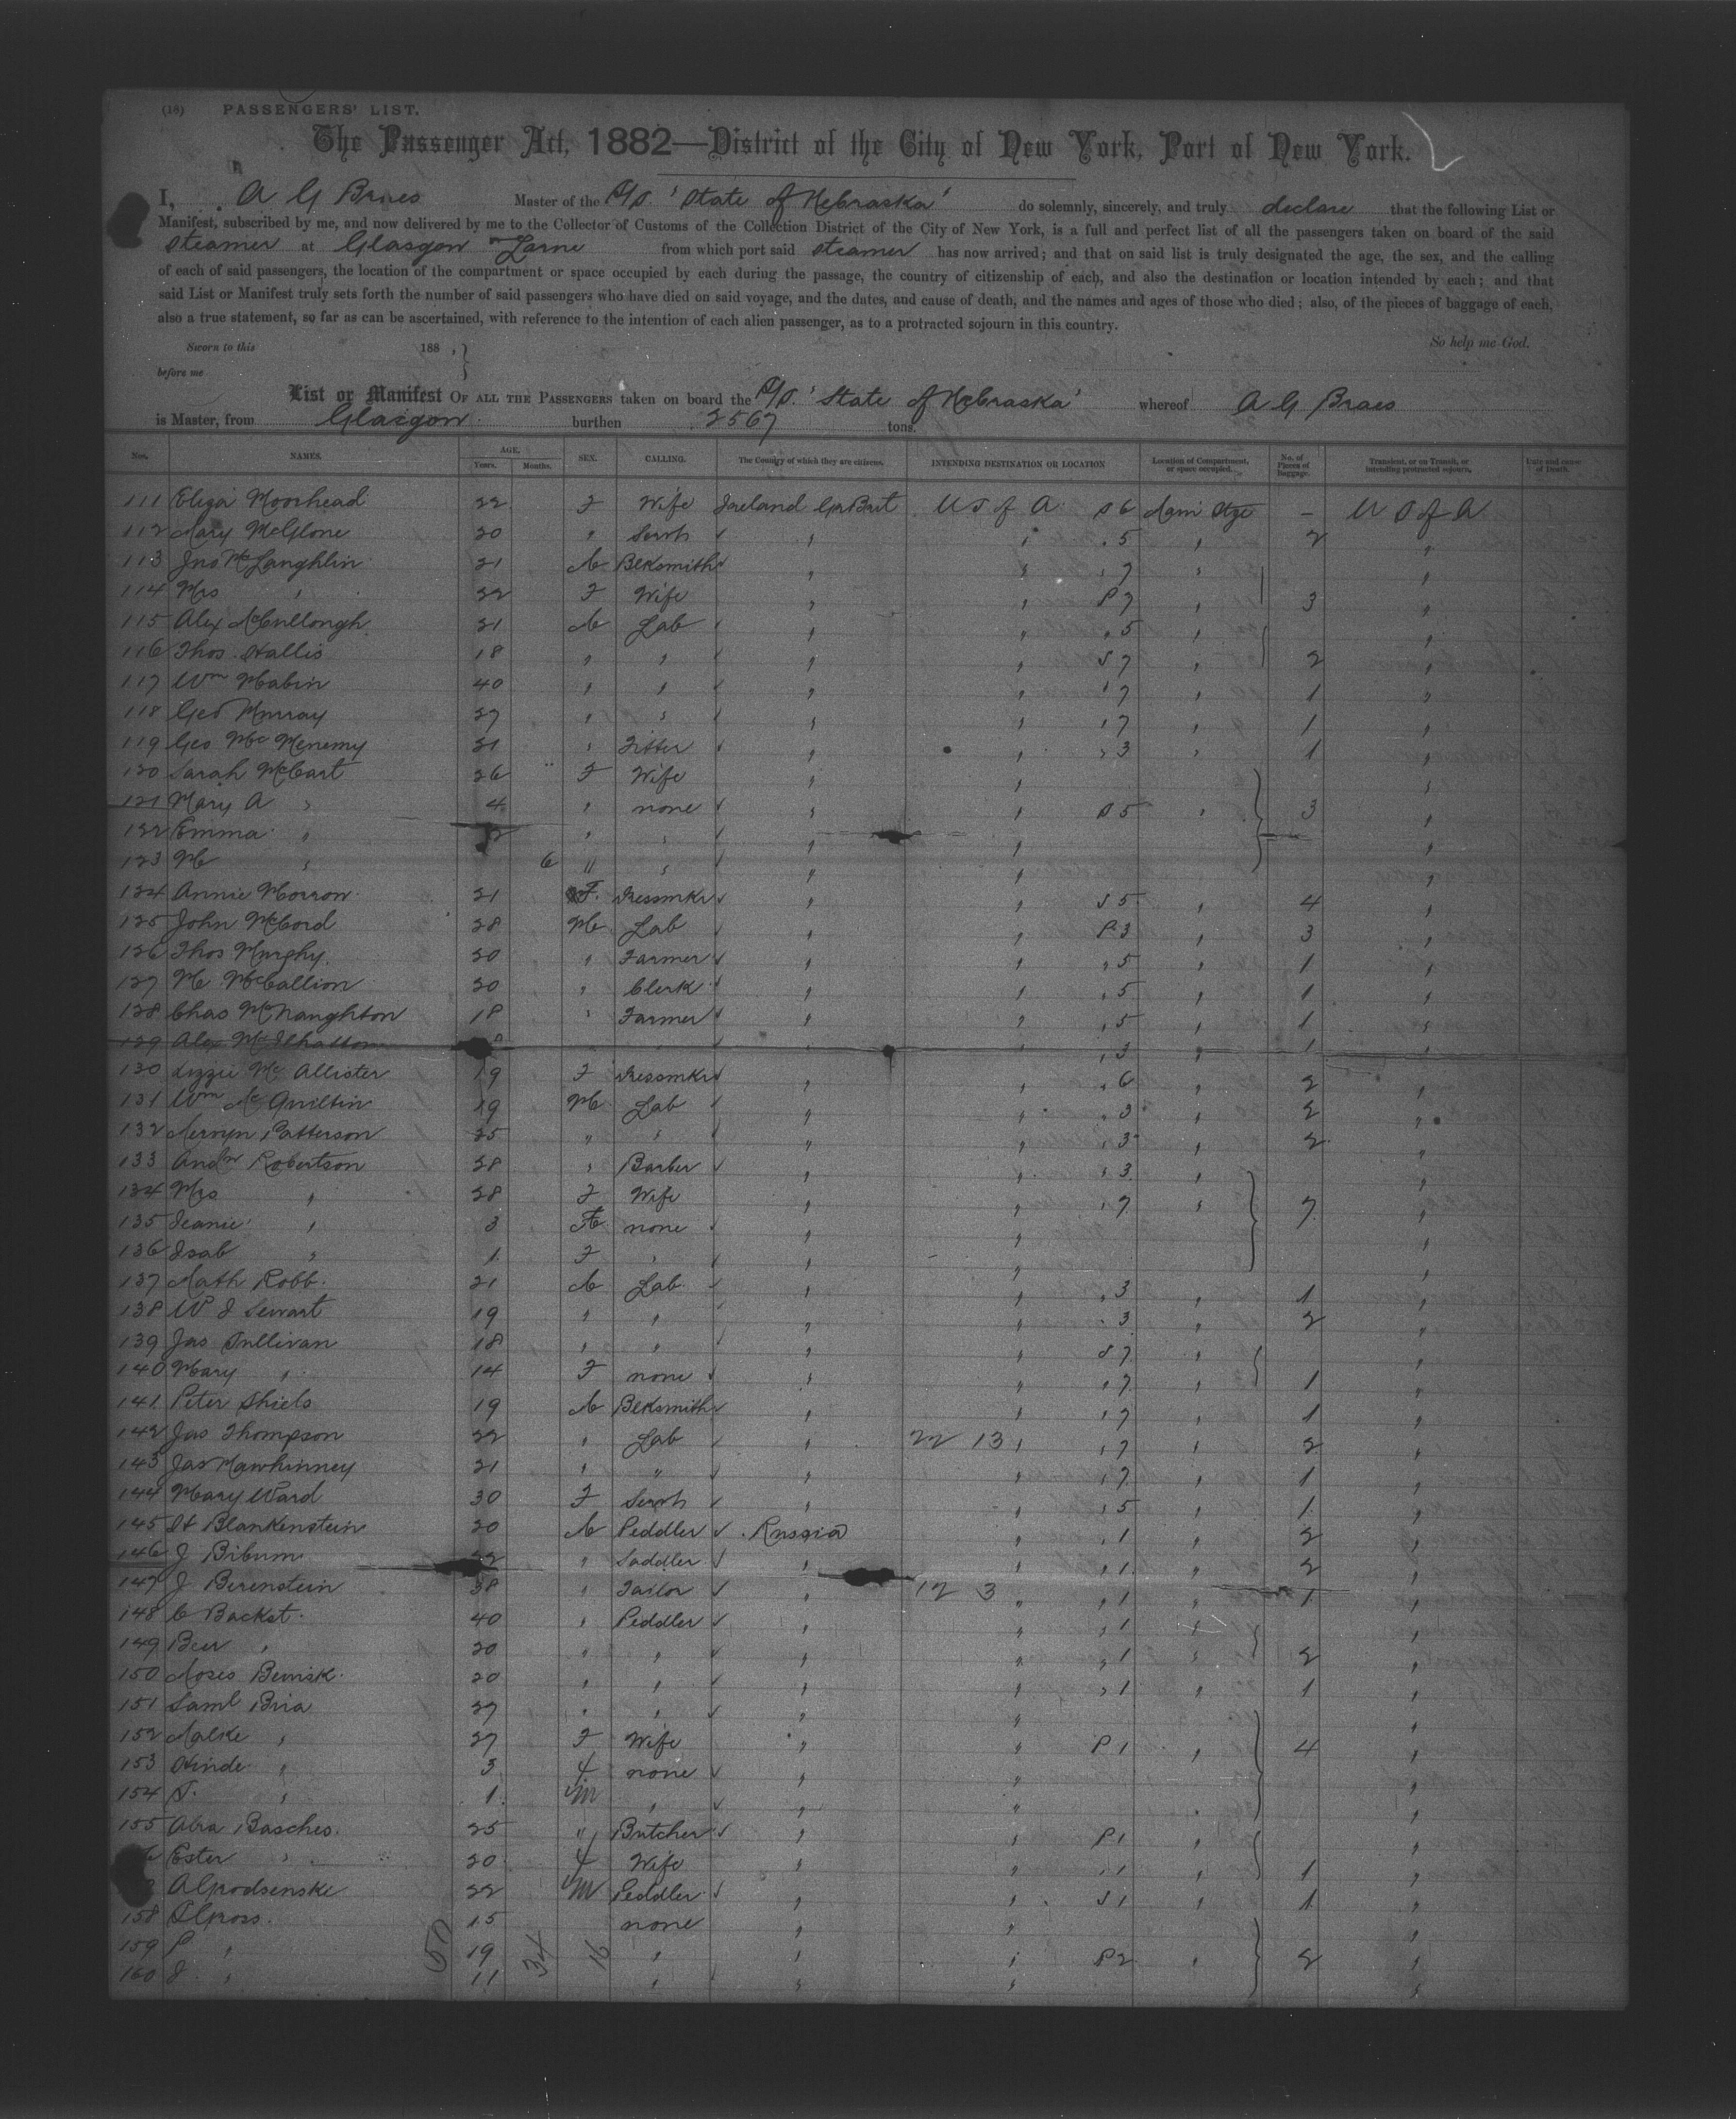 (18) PASSENGERS' LIST.
The Passenger Act, 1882—District of the City of New York, Port of New York.
I, A G Braes Master of the S/S. 'State of Nebraska' do solemnly, sincerely, and truly declare that the following List or
Manifest, subscribed by me, and now delivered by me to the Collector of Customs of the Collection District of the City of New York, is a full and perfect list of all the passengers taken on board of the said
steamer at Glasgow & Larne from which port said steamer has now arrived; and that on said list is truly designated the age, the sex, and the calling
of each of said passengers, the location of the compartment or space occupied by each during the passage, the country of citizenship of each, and also the destination or location intended by each; and that
said List or Manifest truly sets forth the number of said passengers who have died on said voyage, and the dates, and cause of death, and the names and ages of those who died; also, of the pieces of baggage of each,
also a true statement, so far as can be ascertained, with reference to the intention of each alien passenger, as to a protracted sojourn in this country.
Sworn to this 188 , } So help me God.
before me
List or Manifest OF ALL THE PASSENGERS taken on board the S/S. 'State of Nebraska' whereof A G Braes
is Master, from Glasgow. burthen 2567 tons.
Nos. NAMES. AGE. Years. Months. SEX. CALLING. The Country of which they are citizens. INTENDING DESTINATION OR LOCATION Location of Compartment, or space occupied. No. of Pieces of Baggage. Transient, or on Transit, or intending protracted sojourn. Date and cause of Death.
111 Eliza Moorhead 22 F Wife Ireland Gr Brit U S of A S 6 Main Stge - U S of A
112 Mary McGlone 20 " Servt " " " 5 " 2 "
113 Jno McLaughlin 21 M Blksmith " " " 7 " "
114 Mrs " 22 F Wife " " P 7 " 3 "
115 Alex McCullough 21 M Lab " " " 5 " "
116 Thos Hallis 18 " " " " S 7 " 2 "
117 Wm Mabin 40 " " " " " 7 " 1 "
118 Geo Murray 27 " " " " " 7 " 1 "
119 Geo McMenemy 21 " Fitter " " " 3 " 1 "
120 Sarah McCart 26 F Wife " " "
121 Mary A " 4 " none " " S 5 " 3 "
122 Emma " " " " " "
123 M " 6 " " " " "
124 Annie Morrow 21 F. Dressmkr " " S 5 " 4 "
125 John McCord 28 M Lab " " P 3 " 3 "
126 Thos Murphy 20 " Farmer " " " 5 " 1 "
127 M McCallion 20 " Clerk " " " 5 " 1 "
128 Chas McNaughton 18 " Farmer " " " 5 " 1 "
129 Alex " 3 " 1 "
130 Lizzie Mc Allister 19 F Dressmkr " " " 6 " 2 "
131 Wm Mc Quiltin 19 M Lab " " " 3 " 2 "
132 Mervyn Patterson 25 " " " " " 3 " 2 "
133 Andw Robertson 28 " Barber " " " 3 " "
134 Mrs " 28 F Wife " " " 7 " 7 "
135 Jeanie " 3 F none " " "
136 Isab " 1 F " " " "
137 Math Robb 21 M Lab " " " 3 " 1 "
138 W J Sewart 19 " " " " " 3 " 2 "
139 Jas Sullivan 18 " " " " S 7 " "
140 Mary " 14 F none " " " 7 " 1 "
141 Peter Shiels 19 M Blksmith " " " 7 " 1 "
142 Jas Thompson 22 " Lab " 22 13 " " 7 " 2 "
143 Jas Mawhinney 21 " " " " " 7 " 1 "
144 Mary Ward 30 F Servt " " " 5 " 1 "
145 H Blankenstein 20 M Peddler Russia " " 1 " 2 "
146 J Bibum " Saddler " " " 1 " 2 "
147 J Berenstein 38 " Tailor " 12 3 " " 1 " 1 "
148 C Backst 40 " Peddler " " " 1 " "
149 Beer " 20 " " " " " 1 " 2 "
150 Moses Bemisk 20 " " " " " 1 " 1 "
151 Saml Bria 27 " " " " "
152 Malke " 27 F Wife " " P 1 " 4 "
153 Hinde " 3 F none " " "
154 S. " 1 M " " " "
155 Abra Basches 25 " Butcher " " P 1 " "
Ester " 20 F Wife " " " 1 " 1 "
22 M Peddler " " S 1 " 1 "
158 15 none " " "
159 P " 19 " " " P 2 " 2 "
160 J. " 11 " " " "
50 34 16